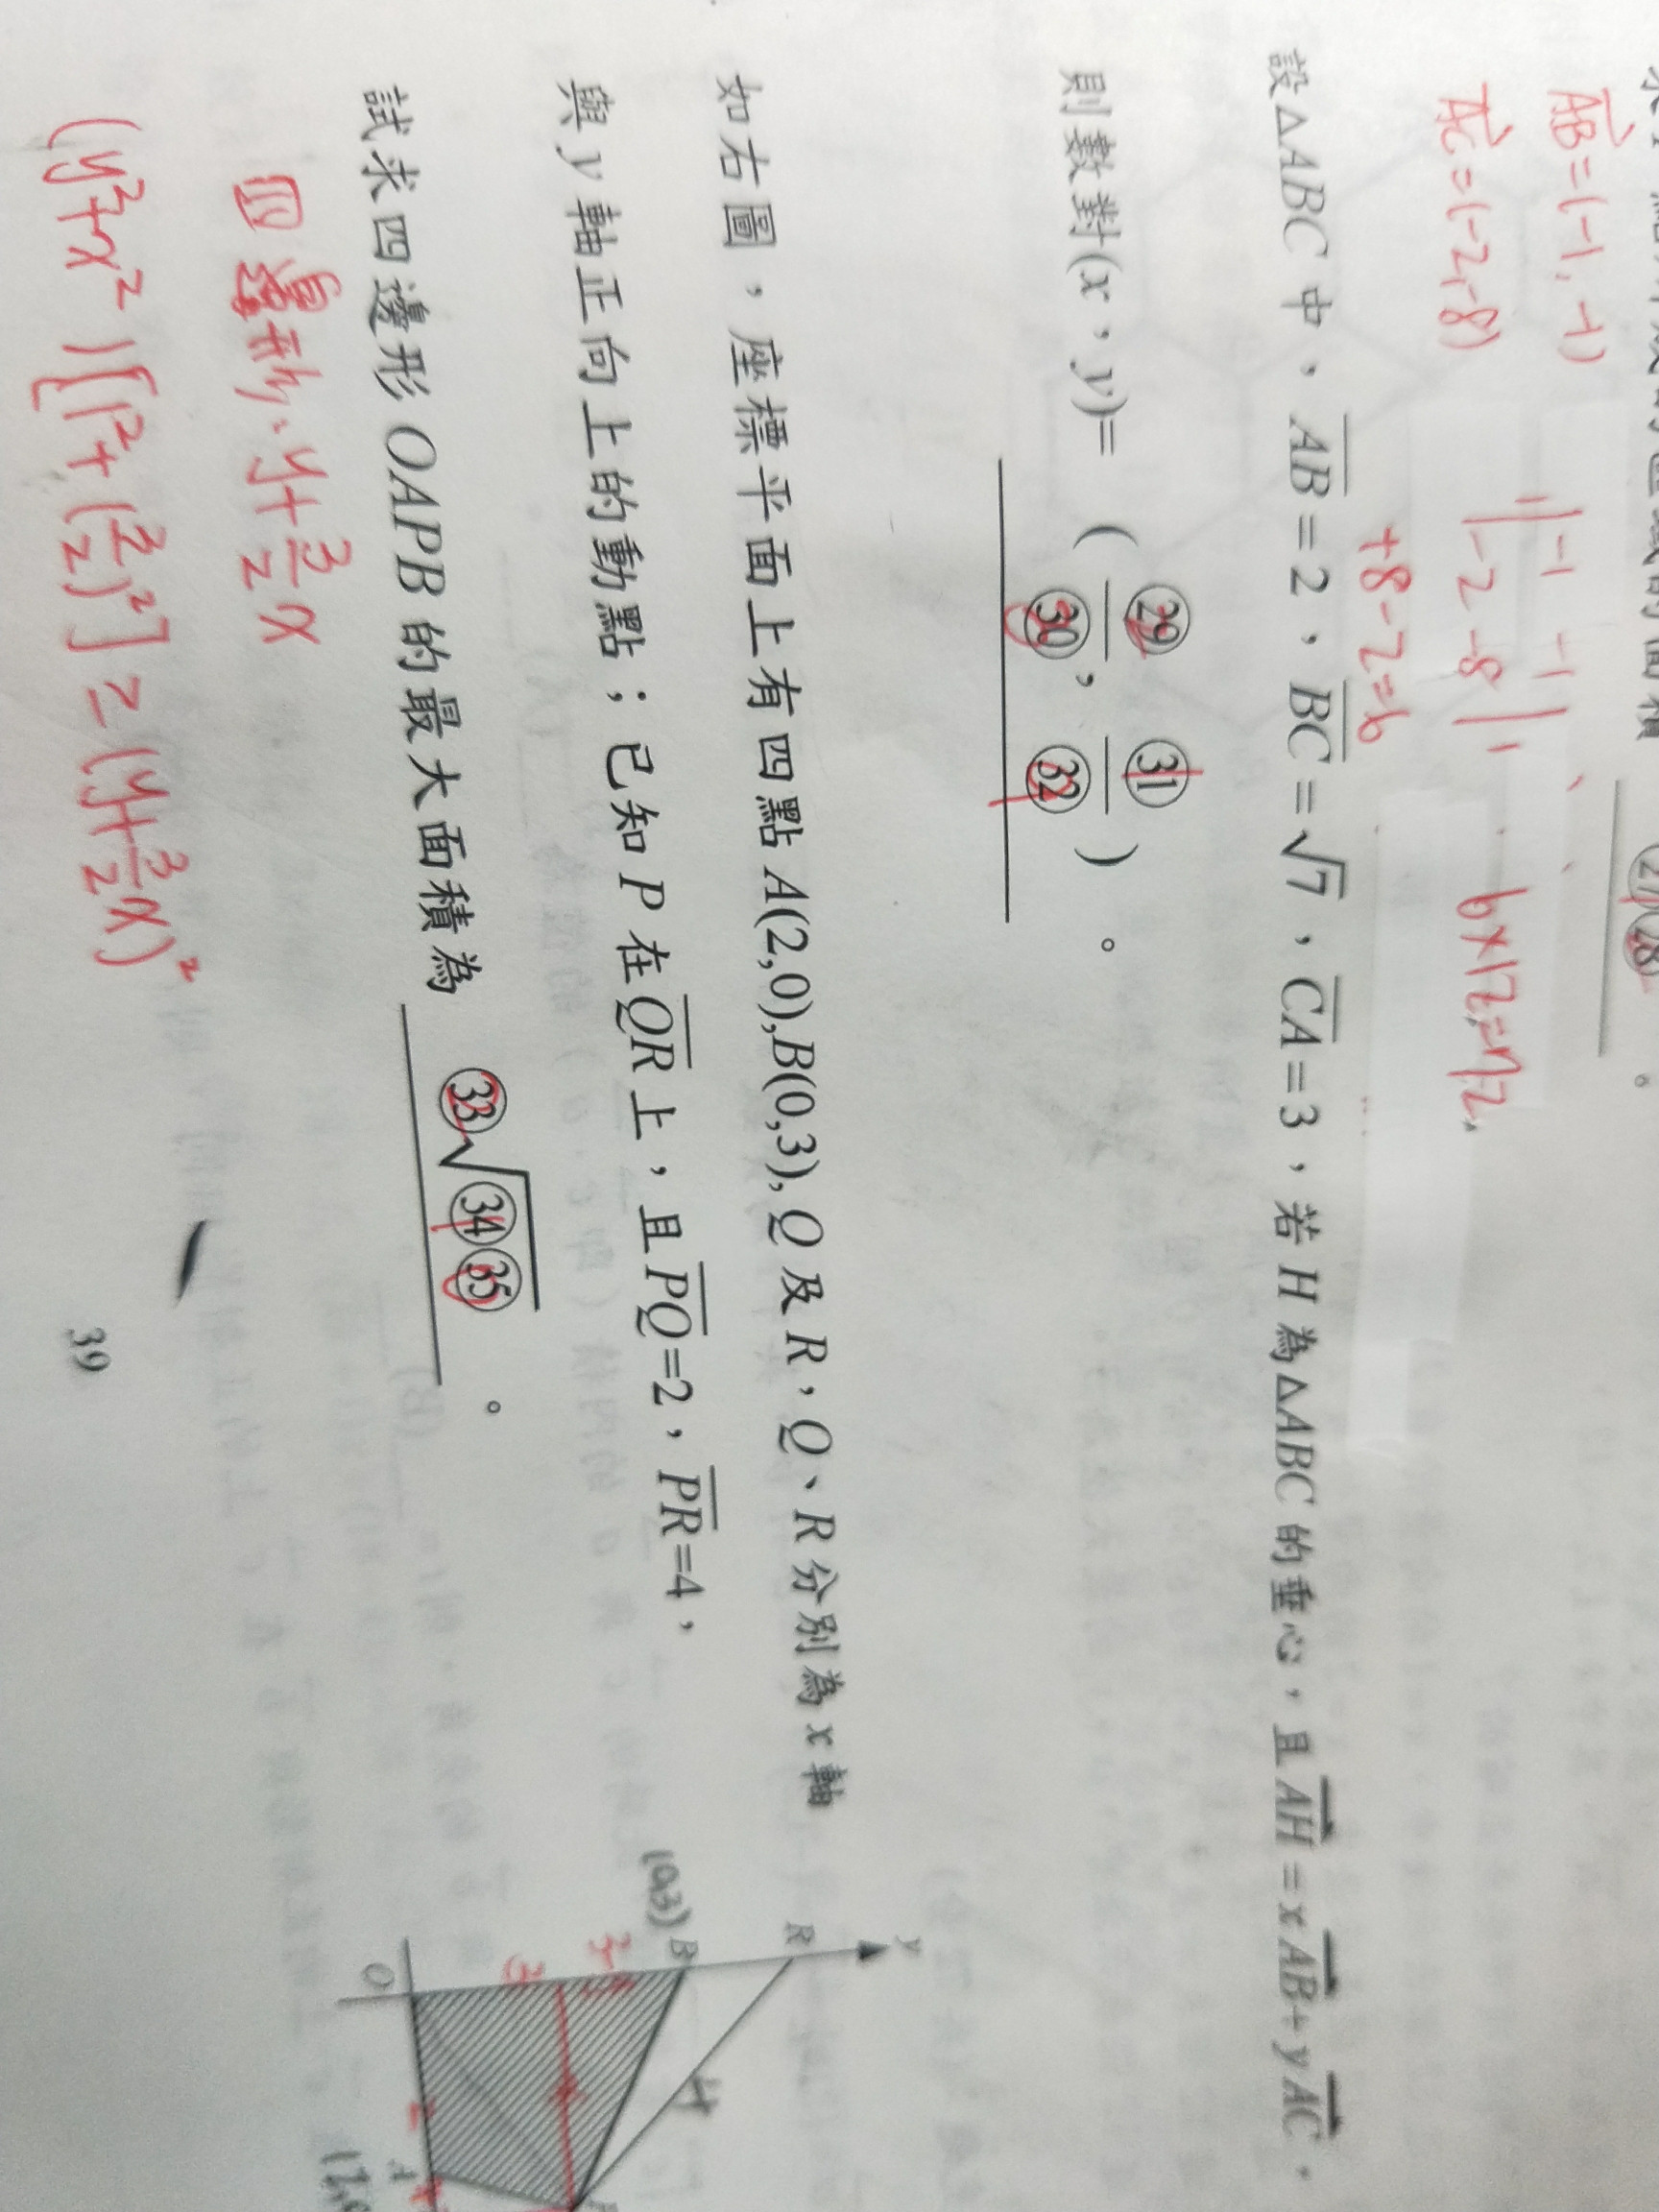 的面積 ㉗㉘ 。
AB=(-1,-1)
AC=(-2,-8)
||-1 -1|
|-2 -8||
+8-2=6
6×12=72
設△ABC中、AB=2、BC=√7,CA=3,若H為△ABC的垂心,且AH=xAB+yAC,
則數對(x,y)= (㉙/㉚,㉛/㉜)。
如右圖,座標平面上有四點A(2,0),B(0,3),Q及R,Q、R分別為x軸
與y軸正向上的動點;已知P在QR上,且PQ=2,PR=4,
試求四邊形OAPB的最大面積為 ㉝√㉞㉟ 。
四邊形、y+3/2x
(y²+x²)[1²+(3/2)²]≥(y+3/2x)²
y
R
B
(0,3)
3
4
O
2
A
39